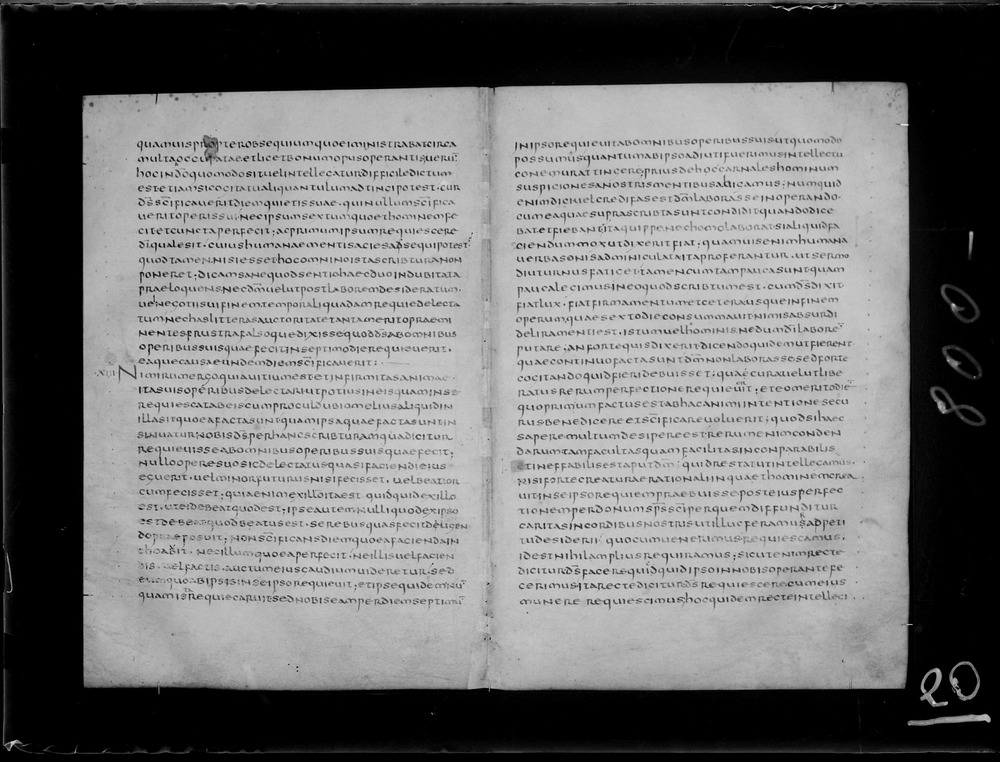 quamuispropterobsequiumquoeiministrabatcirca
multaoccupataeetlicetbonumopusoperantisuerū
hocindoquomodosituelintellecaturdifficiledictum
estetiamsicocitatualiquantulumadtincipotest·cur
dsscificaueritdiemquietissuae·quinullumscifica
ueritoperissui·necipsumsextumquoethominemfe
citetcunctaperfecit;acprimumipsumrequiescere
diqualesit·cuiushumanaementisaciesadsequipotest
quodtamennisiessethocomninoistascribturanon
poneret;dicamsanequodsentiohaecduoindubitata
praeloquensnecdmuelutpostlaboremdesideratum·
uelnecotiisuifinemtemporaliquadamrequiedelecta
tumnechaslitterasauctoritatetantameritopraemi
nentesfrustrafalsoquedixissequoddsabomnibus
operibussuisquaefecitinseptimodierequieuerit·
eaquecausaeundemdiemscificauerit;
·xiiii· Nimirumergoquiauitiumestetinfirmitasanimae·
itasuisoperibusdelectariutpotiusineisquaminse
requiescatabeiscumproculdubiomeliusaliquidin
illasitquoeafactasuntquamipsaquaefactasuntin
sinuaturnobisdsperhancscribturamquadicitur
requieuisseabomnibusoperibussuisquaefecit;
nulloopere suosicdelectatusquasifaciendieius
eguerit·uelminorfuturusnisifecisset·uelbeatior
cumfecisset;quiaenimexilloitaest quidquidexillo
est·uteidebeatquodest;ipseautemnulliquodexipso
estdebeatquodbeatusest·serebusquasfecitdiligen
doproposuit;nonscificansdiemquoeafaciendain
choauit·necillumquoeaperfecit·neilliseluelfacien
dis·uelfactis·auctumeiuscaudiumuideretur·sed
eumquoabipsisinseipsorequieuit;etipsequidemnū
quamistarequiecaruitsednobiseamperdiemseptimū
inipsorequieuitabomnibusoperibussuisutquomodo
possumusquantumabipsoadiutifuerimusintellectu
conemurattincere;priusdehoccarnaleshominum
suspicionesanostrismentibusabicamus;numquid
enimdiciuelcredifasestdmlaborasseinoperando·
cumeaquaesuprascribtasuntcondiditquandodice
batetfiebant;itaquippenechomolaboratsialiquidfa
ciendummoxutdixeritfiat;quamuisenimhumana
uerbasonisadminiculataitaproferantur·utsermo
diuturnusfaticettamencumtampaucasuntquam
paucalecimusineoquodscribtumest·cumdsdixit
fiatlux·fiatfirmamentumetceterausqueinfinem
operumquaesextodieconsummauitnimisabsurdi
deliramentiest·istumuelhominisnedumdilabore
putare;anfortequisdixeritdicendoquidemutfierent
quaecontinuofactasuntdmnonlaborassesedforte
cocitandoquidfieridebuisset;quaecurauelutlibe
ratusrerumperfectionerequieuit;eteomeritodie
quoprimumfactusestabhacanimiintentionesecu
rusbenedicereetscificareuoluerit;quodsihaec
sapere multumdesipereestrerumenimconden
darumtamfacultasquamfacilitasinconparabilis
etineffabilisestaputdm;quidrestatutintellecamus·
nisifortecreaturaerationaliinquaethominemcrea
uitinseipsorequiempraebuisseposteiusperfec
tionemperdonumspssciperquemdiffunditur
caritasincordibusnostrisutilluceferamuradpeti
tudesiderii·quocumuenerimusrequiescamus·
idestnihilampliusrequiramus;sicutenimrecte
diciturdsfacerequidquidipsoinnobisoperantefe
cerimusitarectediciturdsrequiescerecumeius
munere requiescimus;hocquidemrecteintelleci
800-
20